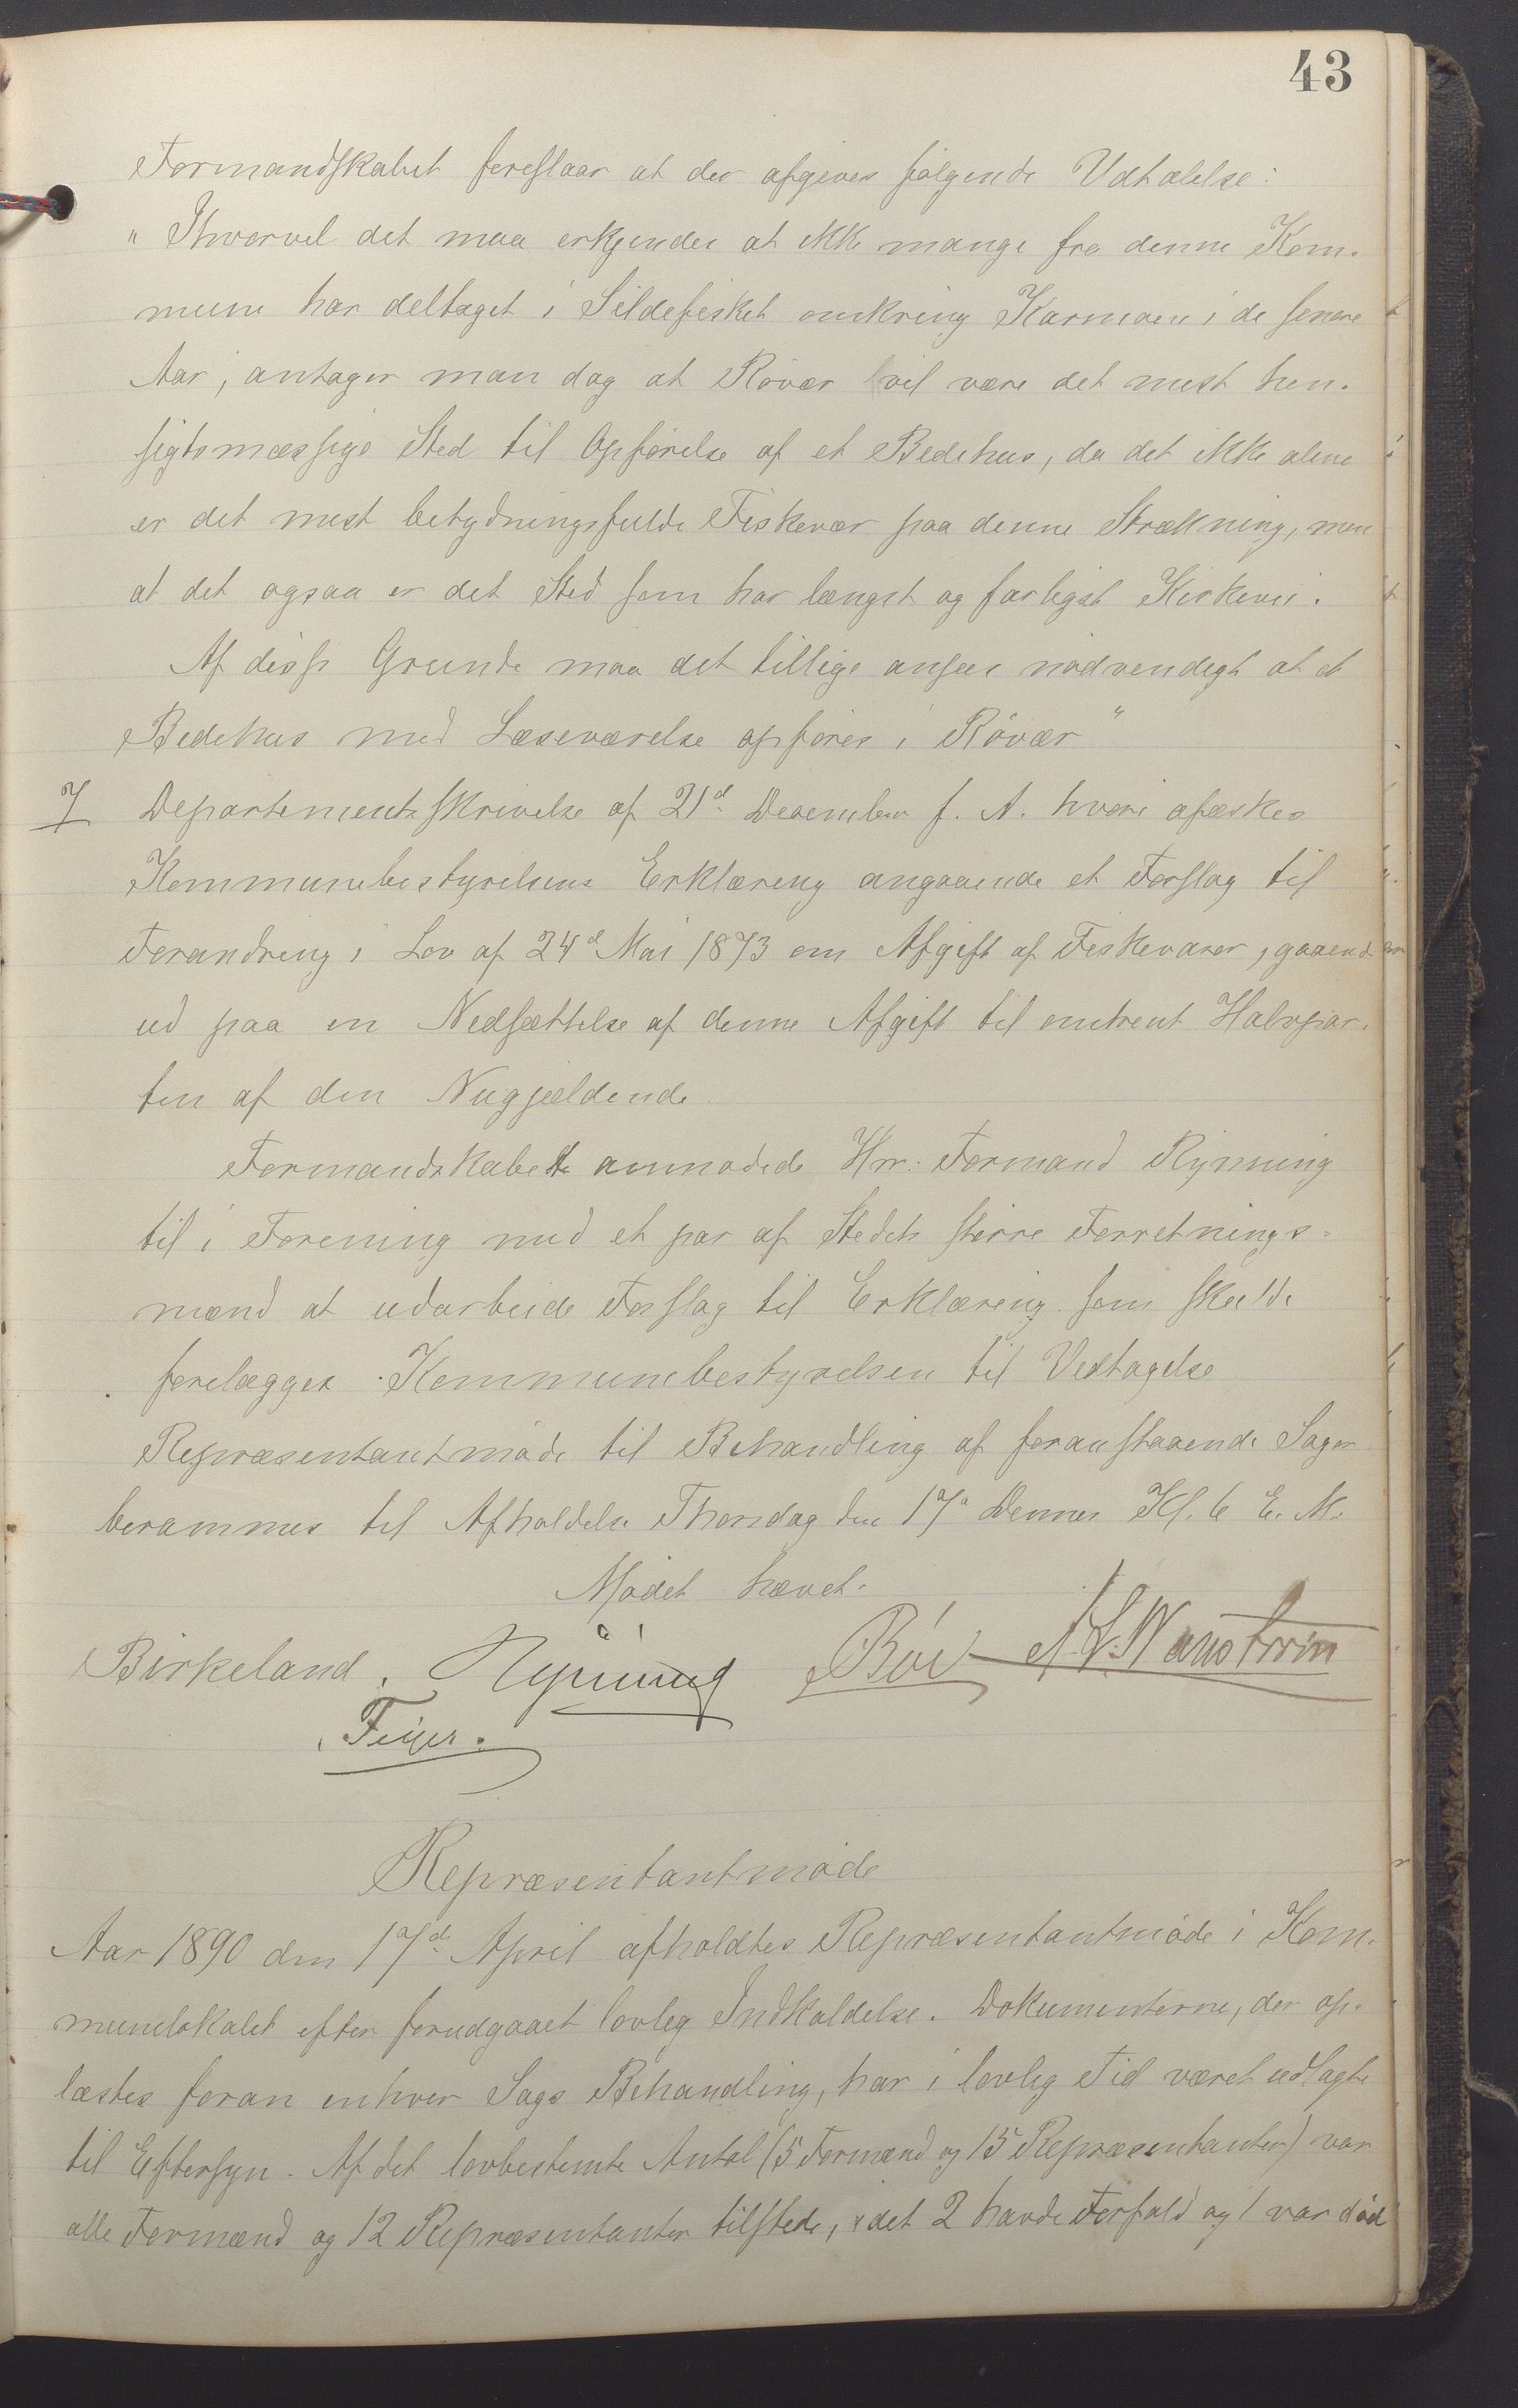 43
Formandskabet foreslaar at der afgives følgende Udtalelse:
"Ihvorvel det maa erkjendes at ikke mange fra denne Kom-
mune har deltaget i Sildefisket omkring Karmøen i de senere
Aar, antager man dog at Røvær vil være det mest hen-
sigtsmæssige Sted til Opførelse af et Bedehus, da det ikke alene
er det mest betydningsfulde Fiskevær paa denne Strækning, men
at det ogsaa er det Sted som har længst og farligst Kirkevei.
Af disse Grunde maa det tillige ansees nødvendigt at et
Bedehus med Læseværelse opføres i Røvær"
7 Departementsskrivelse af 21d December f. A. hvori afæskes
Kommunebestyrelsens Erklæring angaaende et Forslag til
Forandring i Lov af 24d Mai 1873 om Afgift af Fiskevarer, gaaende
ud paa en Nedsættelse af denne Afgift til omtrent Halvpar-
ten af den Nugjældende.
Formandskabet anmodede Hrr. Formand Rynning
til i Forening med et par af Stedets større Forretnings-
mænd at udarbeide Forslag til Erklæring som skulde
forelægges Kommunebestyrelsen til Vedtagelse
Repræsentantmøde til Behandling af foranstaaende Sager
berammes til Afholdelse Thorsdag den 17de Dennes Kl. 6 E. M.
Mødet hævet.
Birkeland. Rynning Bøe
Feyer.
Repræsentantmøde
Aar 1890 den 17de April afholdtes Repræsentantmøde i Kom-
munelokalet efter forudgaaet lovlig Indkaldelse. Dokumenterne, der op-
læstes foran enhver Sags Behandling, har i lovlig Tid været udlagte
til Eftersyn. Af det lovbestemte Antal (5 Formænd og 15 Repræsentanter) var
alle Formænd og 12 Repræsentanter tilstede, idet 2 havde Forfald og 1 var død